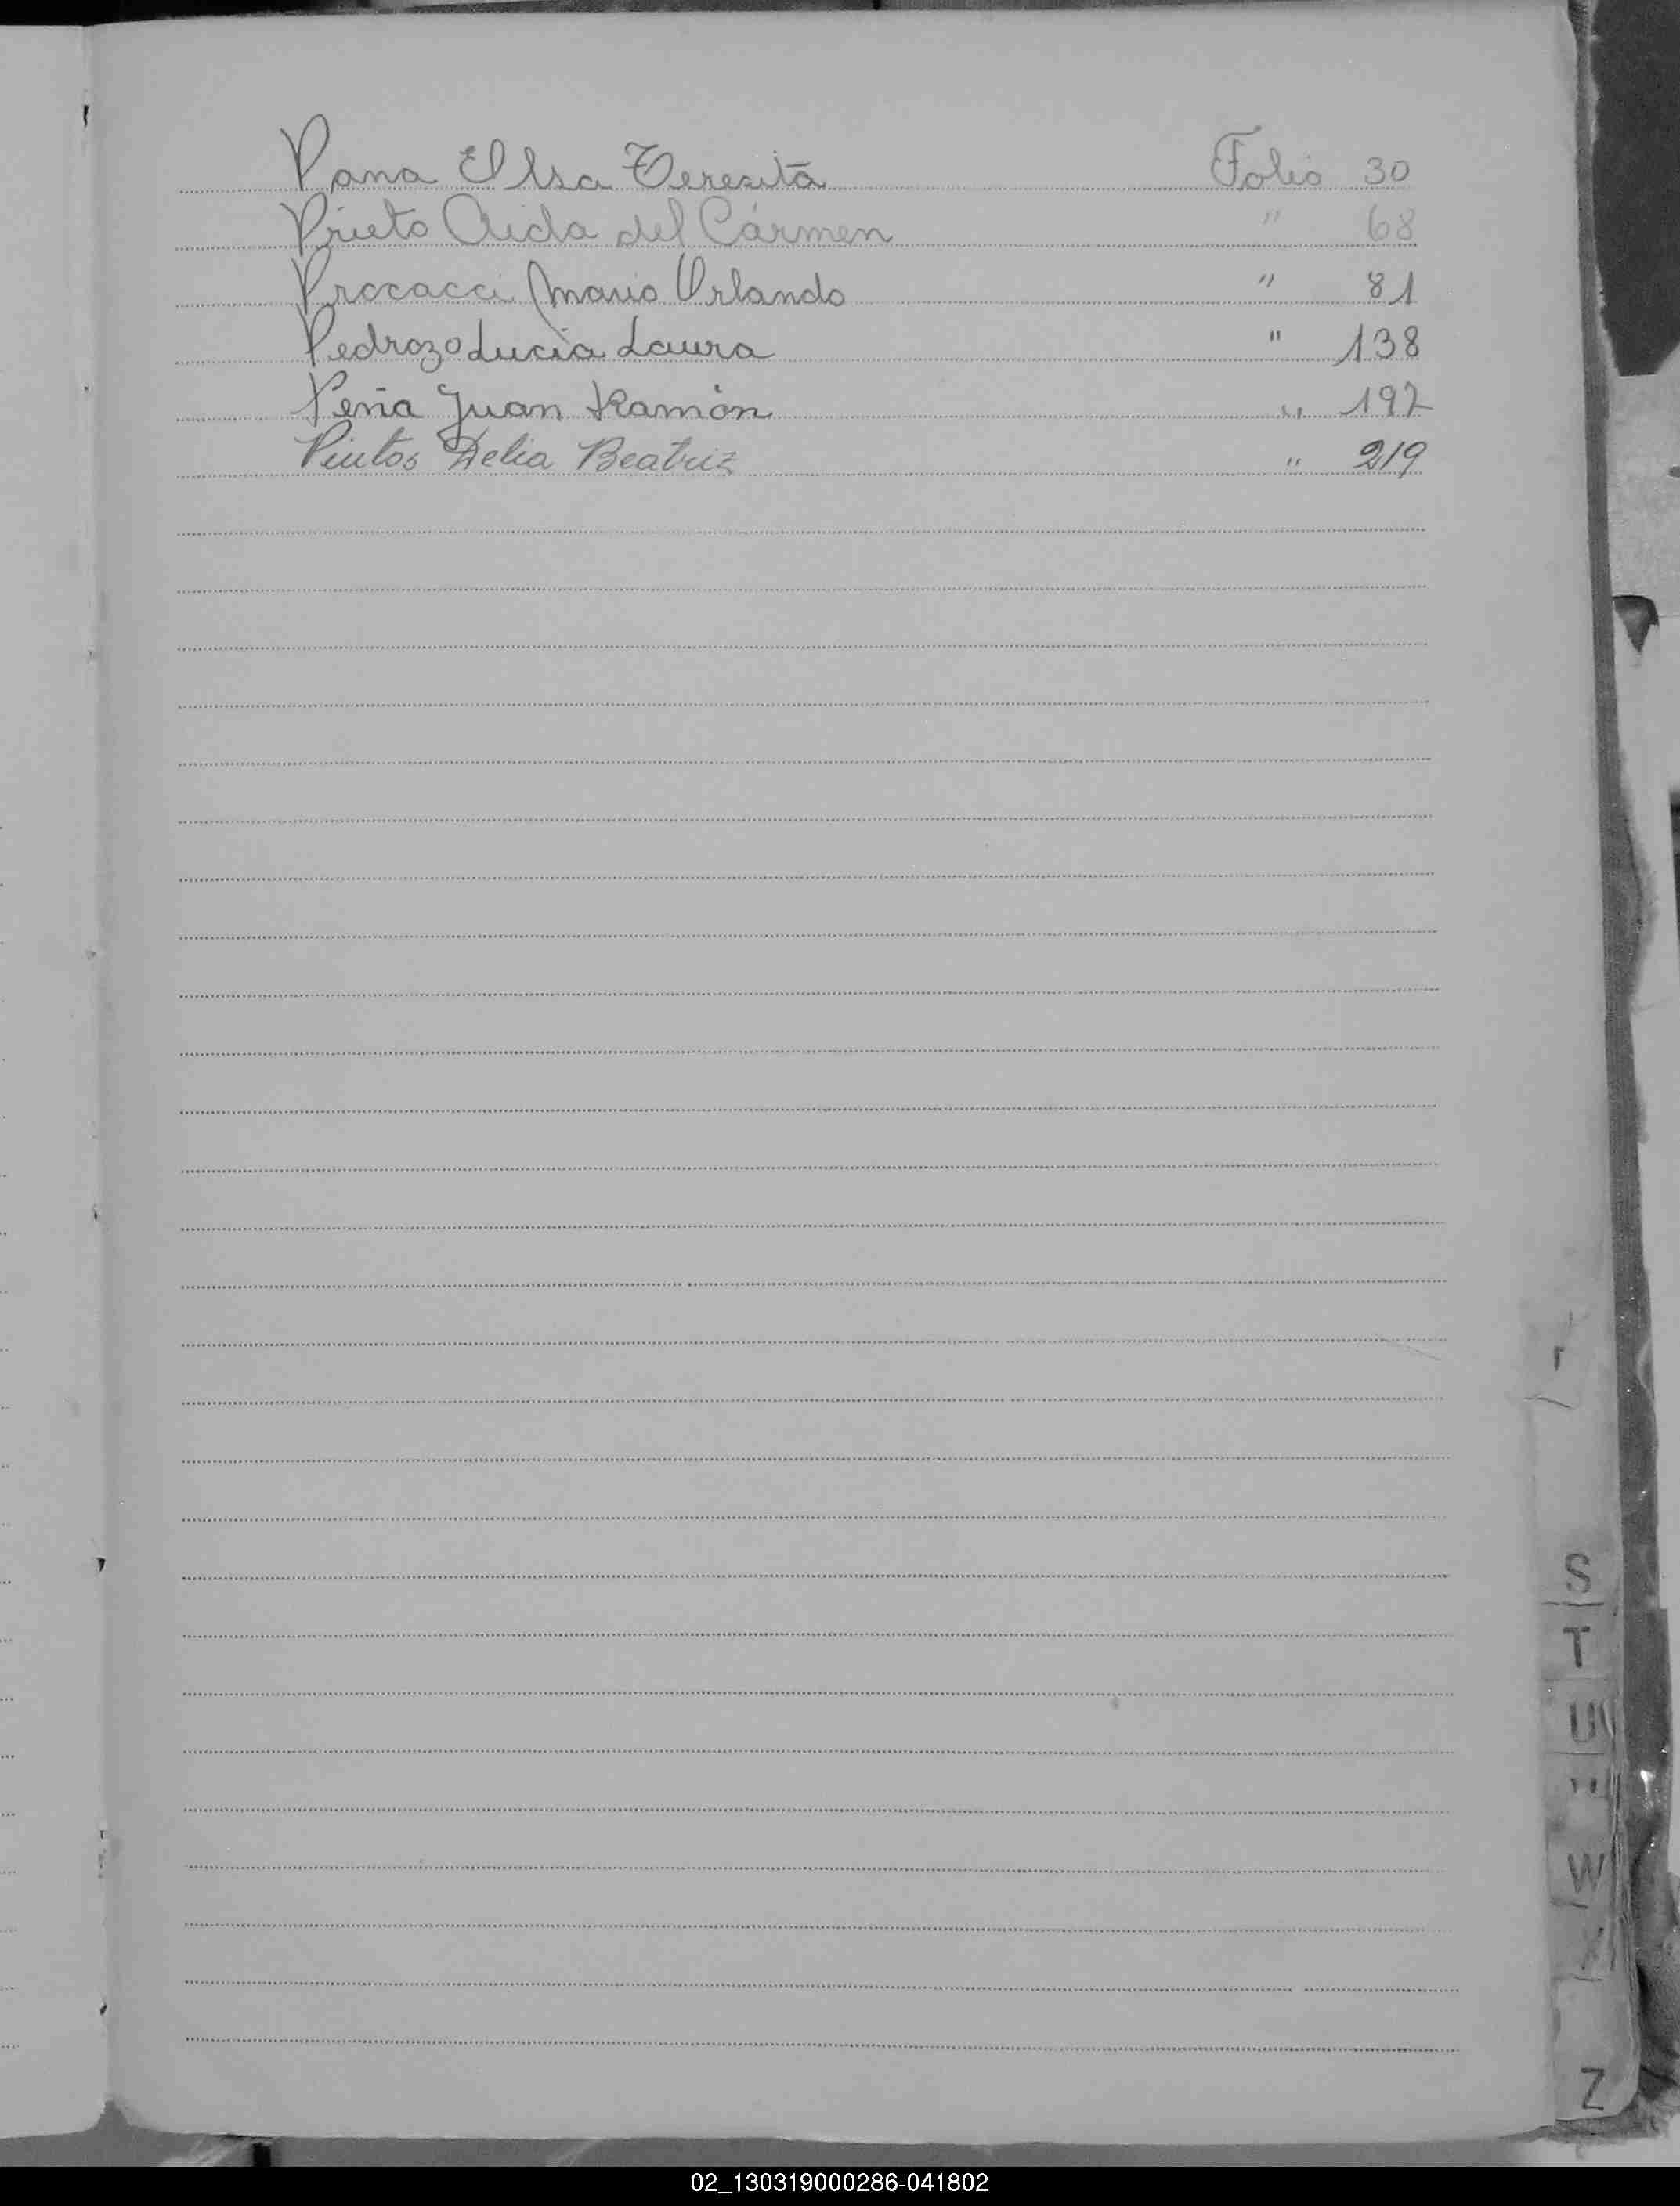 Pana Elsa Teresita Folio 30
Prieto Aida del Cármen " 68
Procacci Mario Orlando " 81
Pedrozo Lucia Laura " 138
Peña Juan Ramón " 192
Pintos Delia Beatriz " 219
S
T
U
W
Z
02_130319000286-041802